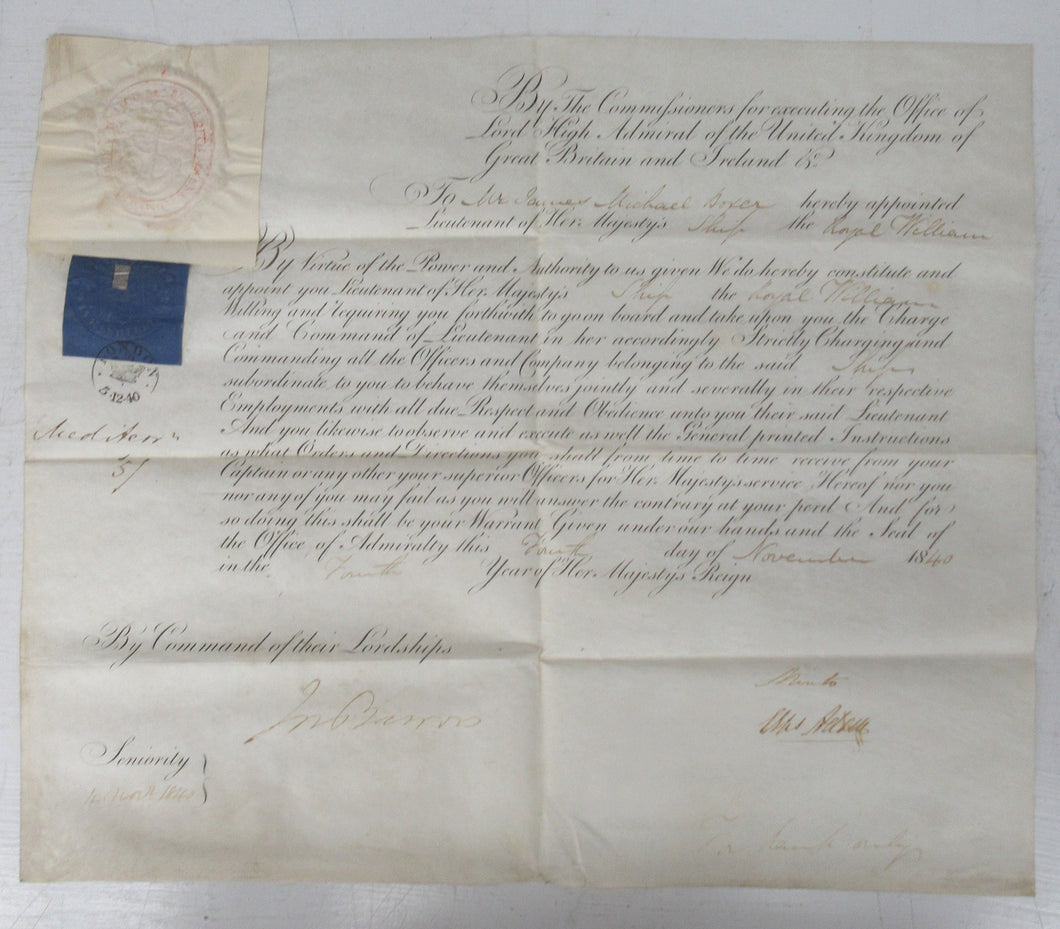 By The Commissioners for executing the Office of
Lord High Admiral of the United Kingdom of
Great Britain and Ireland &c.
To Mr James Michael Boxer hereby appointed
Lieutenant of Her Majesty's Ship the Royal William
By Virtue of the Power and Authority to us given We do hereby constitute and
appoint you Lieutenant of Her Majesty's Ship the Royal William
Willing and requiring you forthwith to go on board and take upon you the Charge
and Command of Lieutenant in her accordingly Strictly Charging and
Commanding all the Officers and Company belonging to the said Ship
subordinate to you to behave themselves jointly and severally in their respective
Employments with all due Respect and Obedience unto you their said Lieutenant
And you likewise to observe and execute as well the General printed Instructions
as what Orders and Directions you shall from time to time receive from your
Captain or any other your superior Officers for Her Majesty's service Hereof nor you
nor any of you may fail as you will answer the contrary at your peril And for
so doing this shall be your Warrant Given under our hands and the Seal of
the Office of Admiralty this Fourth day of November 1840
in the Fourth Year of Her Majesty's Reign
LONDON
5·12·40
5/
By Command of their Lordships
Jn Barrow
Minto
Chas Adam
Seniority
4 Novr 1840
For Rank only